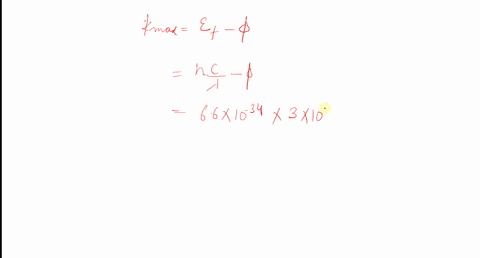 Kmax = Ef − ϕ
= hc/λ − ϕ
= 6.6 × 10^-34 × 3 × 10